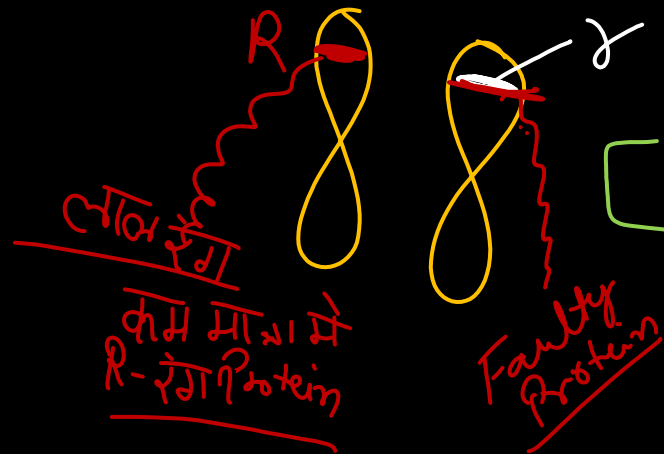 R
r
लाल रंग
कम मात्रा में
R-रंग Protein
Faulty
Protein